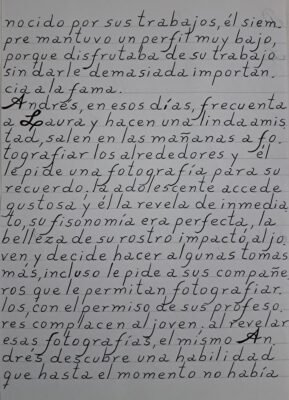 nocido por sus trabajos, él siem
pre mantuvo un perfil muy bajo,
porque disfrutaba de su trabajo
sin darle demasiada importan
cia a la fama.
Andrés, en esos días, frecuenta
a Laura y hacen una linda amis
tad, salen en las mañanas a fo
tografiar los alrededores y él
le pide una fotografía para su
recuerdo, la adolescente accede
gustosa y él la revela de inmedia
to, su fisonomía era perfecta, la
belleza de su rostro impactó al jo
ven y decide hacer algunas tomas
más, incluso le pide a sus compañe
ros que le permitan fotografiar
los, con el permiso de sus profeso
res complacen al joven, al revelar
esas fotografías, el mismo An
drés descubre una habilidad
que hasta el momento no había